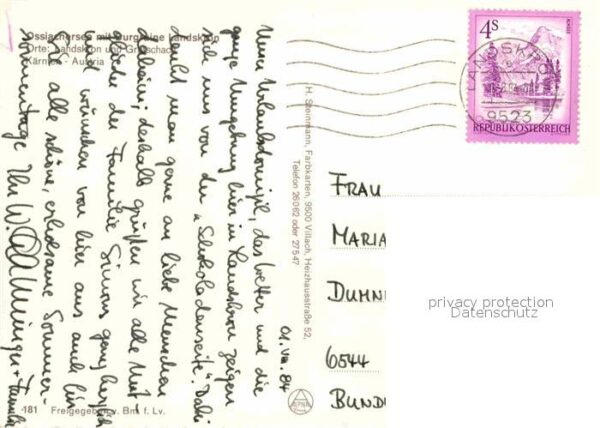 Ossiachersee mit Burgruine Landskron
Orte: Landskron und Gratschach
Kärnten - Austria
01. VIII. 84
Unser Urlaubsdomizil, das Wetter und die
ganze Umgebung hier in Landskron zeigen
sich uns von der "Schokoladenseite". Dabei
denkt man gerne an liebe Menschen
daheim; deshalb grüßen wir alle Mit-
glieder der Familie Simons ganz herzlich
und wünschen von hier aus auch
alle schöne, erholsame Sommer-
sonnentage. Ihr W. + Familie
181 Freigegeben v. Bmf. Lv.
H. Steinmann, Farbkarten, 9500 Villach, Heizhausstraße 52,
Telefon 26062 oder 27547
4S
REPUBLIK ÖSTERREICH
LANDSKRON
9523
FRAU
MARIA
DUMN
6544
BUND
privacy protection
Datenschutz